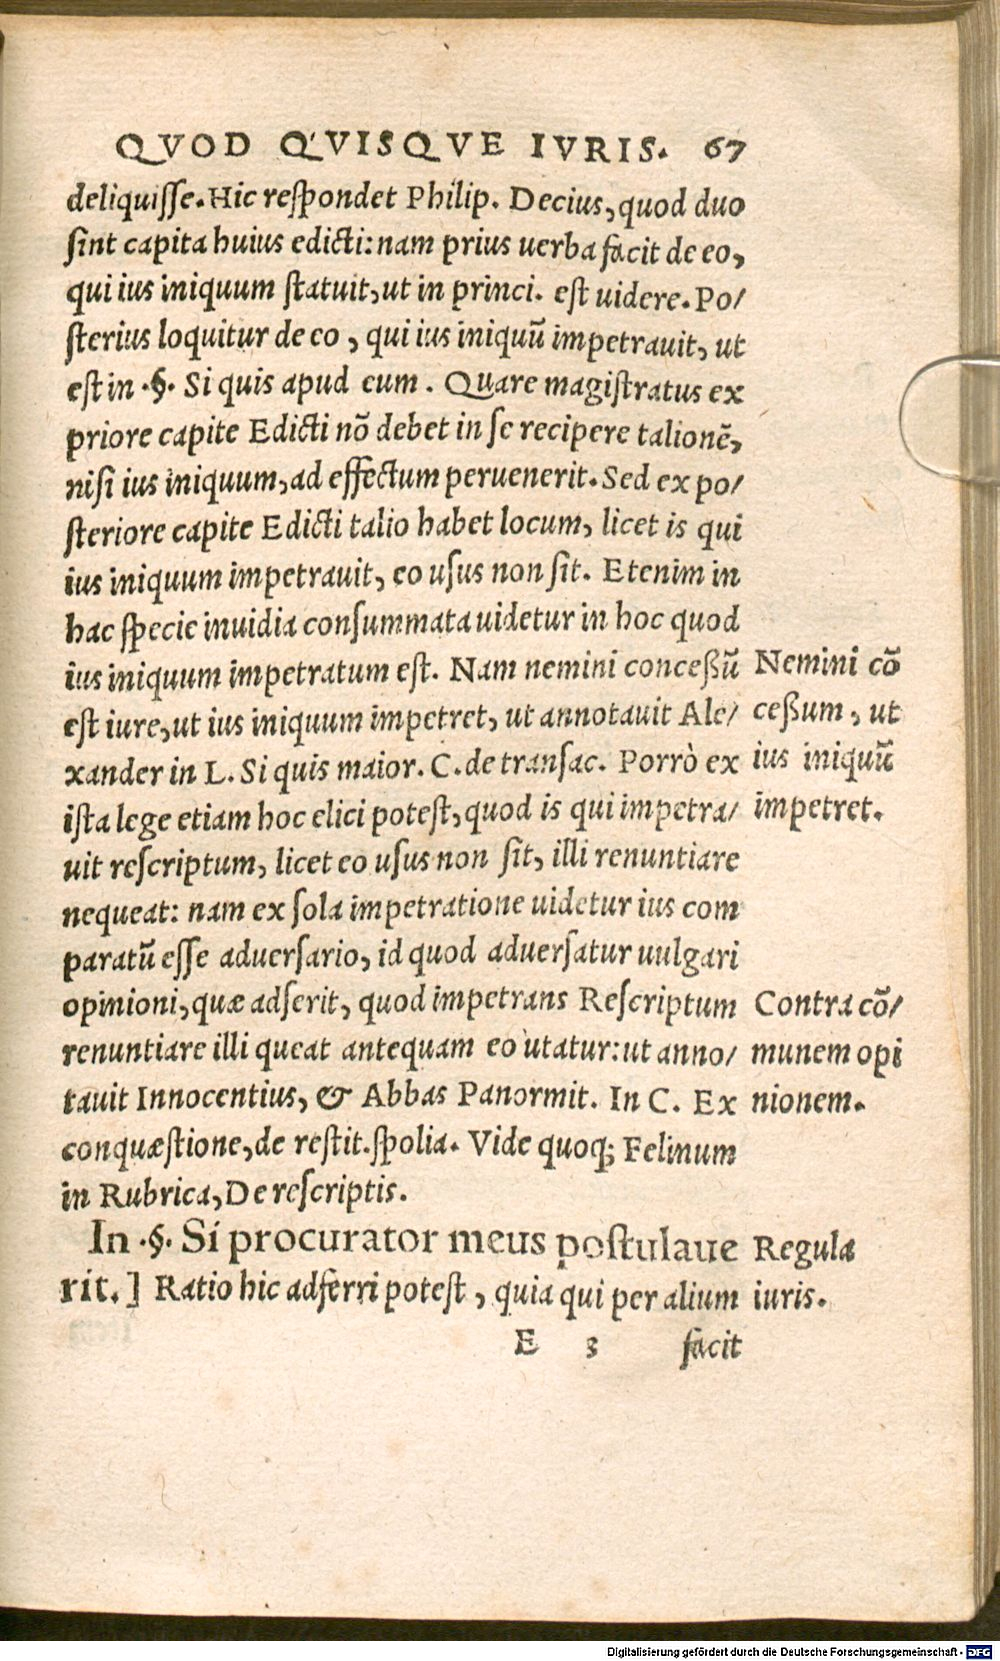 QVOD QVISQVE IVRIS. 67
deliquisse. Hic respondet Philip. Decius, quod duo
sint capita huius edicti: nam prius uerba facit de eo,
qui ius iniquum statuit, ut in princi. est uidere. Po/
sterius loquitur de eo, qui ius iniquū impetrauit, ut
est in .§. Si quis apud eum. Quare magistratus ex
priore capite Edicti nō debet in se recipere talionē,
nisi ius iniquum, ad effectum peruenerit. Sed ex po/
steriore capite Edicti talio habet locum, licet is qui
ius iniquum impetrauit, eo usus non sit. Etenim in
hac specie inuidia consummata uidetur in hoc quod
ius iniquum impetratum est. Nam nemini conceßū
est iure, ut ius iniquum impetret, ut annotauit Ale/
xander in L. Si quis maior. C. de transac. Porrò ex
ista lege etiam hoc elici potest, quod is qui impetra/
uit rescriptum, licet eo usus non sit, illi renuntiare
nequeat: nam ex sola impetratione uidetur ius com
paratū esse aduersario, id quod aduersatur uulgari
opinioni, quæ adserit, quod impetrans Rescriptum
renuntiare illi queat antequam eo utatur: ut anno/
tauit Innocentius, & Abbas Panormit. In C. Ex
conquæstione, de restit. spolia. Vide quoq; Felinum
in Rubrica, De rescriptis.
In .§. Si procurator meus postulaue
rit.] Ratio hic adferri potest, quia qui per alium
E 3 facit
Nemini cō
ceßum, ut
ius iniquū
impetret.
Contra cō/
munem opi
nionem.
Regula
iuris.
Digitalisierung gefördert durch die Deutsche Forschungsgemeinschaft - DFG